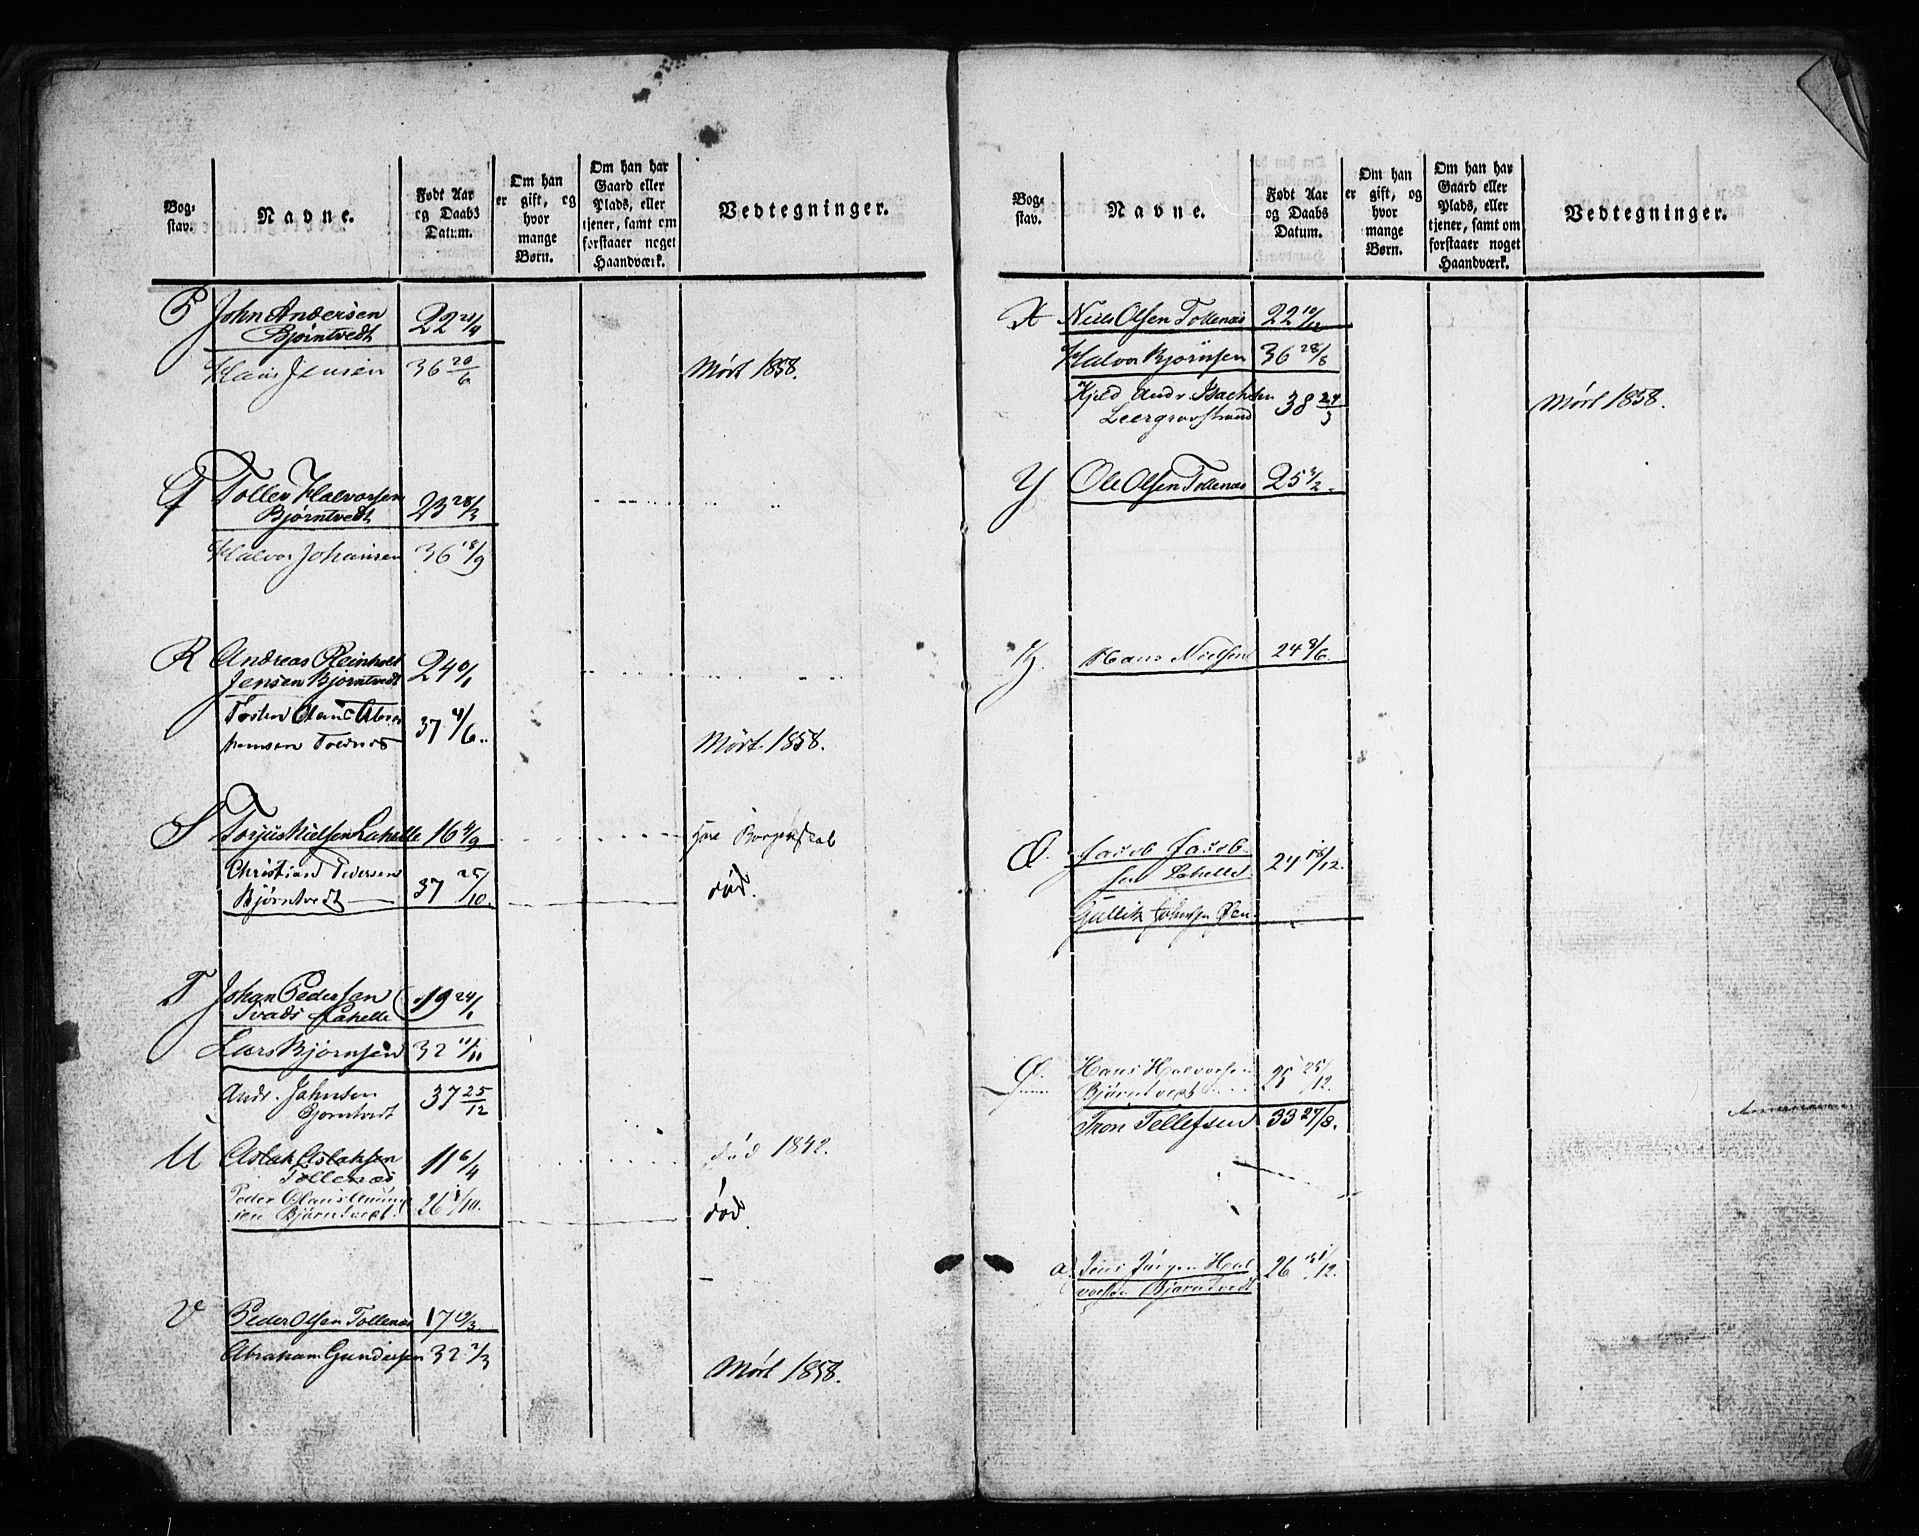 Bog-
stav.
Navne.
Født Aar
og Daabs
Datum.
Om han
er gift, og
hvor
mange
Børn.
Om han har
Gaard eller
Plads, eller
tjener, samt om
forstaaer noget
Haandværk.
Vedtegninger.
P John Andersen
Bjørntvedt 22 21/9
Hans Jensen 36 20/6
Mørt 1858.
Q Tollev Halvorsen
Bjørntvedt 23 28/3
Halvor Johansen 36 18/9
R Andreas Reinholt
Jensen Bjørntvedt 24
37 4/6
Mørt 1858.
S Torjus Nielsen Lahelle 16 4/9
Borgerskab
Christian Pedersen
Bjørntvedt 37 25/10.
død.
T Johan Pedersen
Lahelle 19 24/1
Lars Bjørnsen 32 11/11
Andr. Johnsen
Bjørntvedt 37 25/12
U Aslak Aslaksen
Tollenæs 11 6/4
død 1842.
Peder
sen Bjørntvedt 26 1/10.
død.
V Peder Olsen Tollenæs 17
Abraham Gundersen 32 2/3
Mørt 1858.
Bog-
stav.
Navne.
Født Aar
og Daabs
Datum.
Om han
er gift, og
hvor
mange
Børn.
Om han har
Gaard eller
Plads, eller
tjener, samt om
forstaaer noget
Haandværk.
Vedtegninger.
X Niels Olsen Tollenæs 22 10/12
Halvor Bjørnsen 36 28/8
Kjeld Andr. Isachsen
Leergravstrand 38 24/3
Mørt 1858.
Y Ole Olsen Tollenæs 25
Hans Nielsen 24 9/6.
Ø. Jacob Jacob-
sen Lahelle 24 18/12.
Gullik Johnsen Øen
Hans Halvorsen
Bjørntvedt 25 25/12.
Thon Tellefsen 33 27/8.
a. Jens Jørgen Hal
vorsen Bjørntvedt 26 31/12.